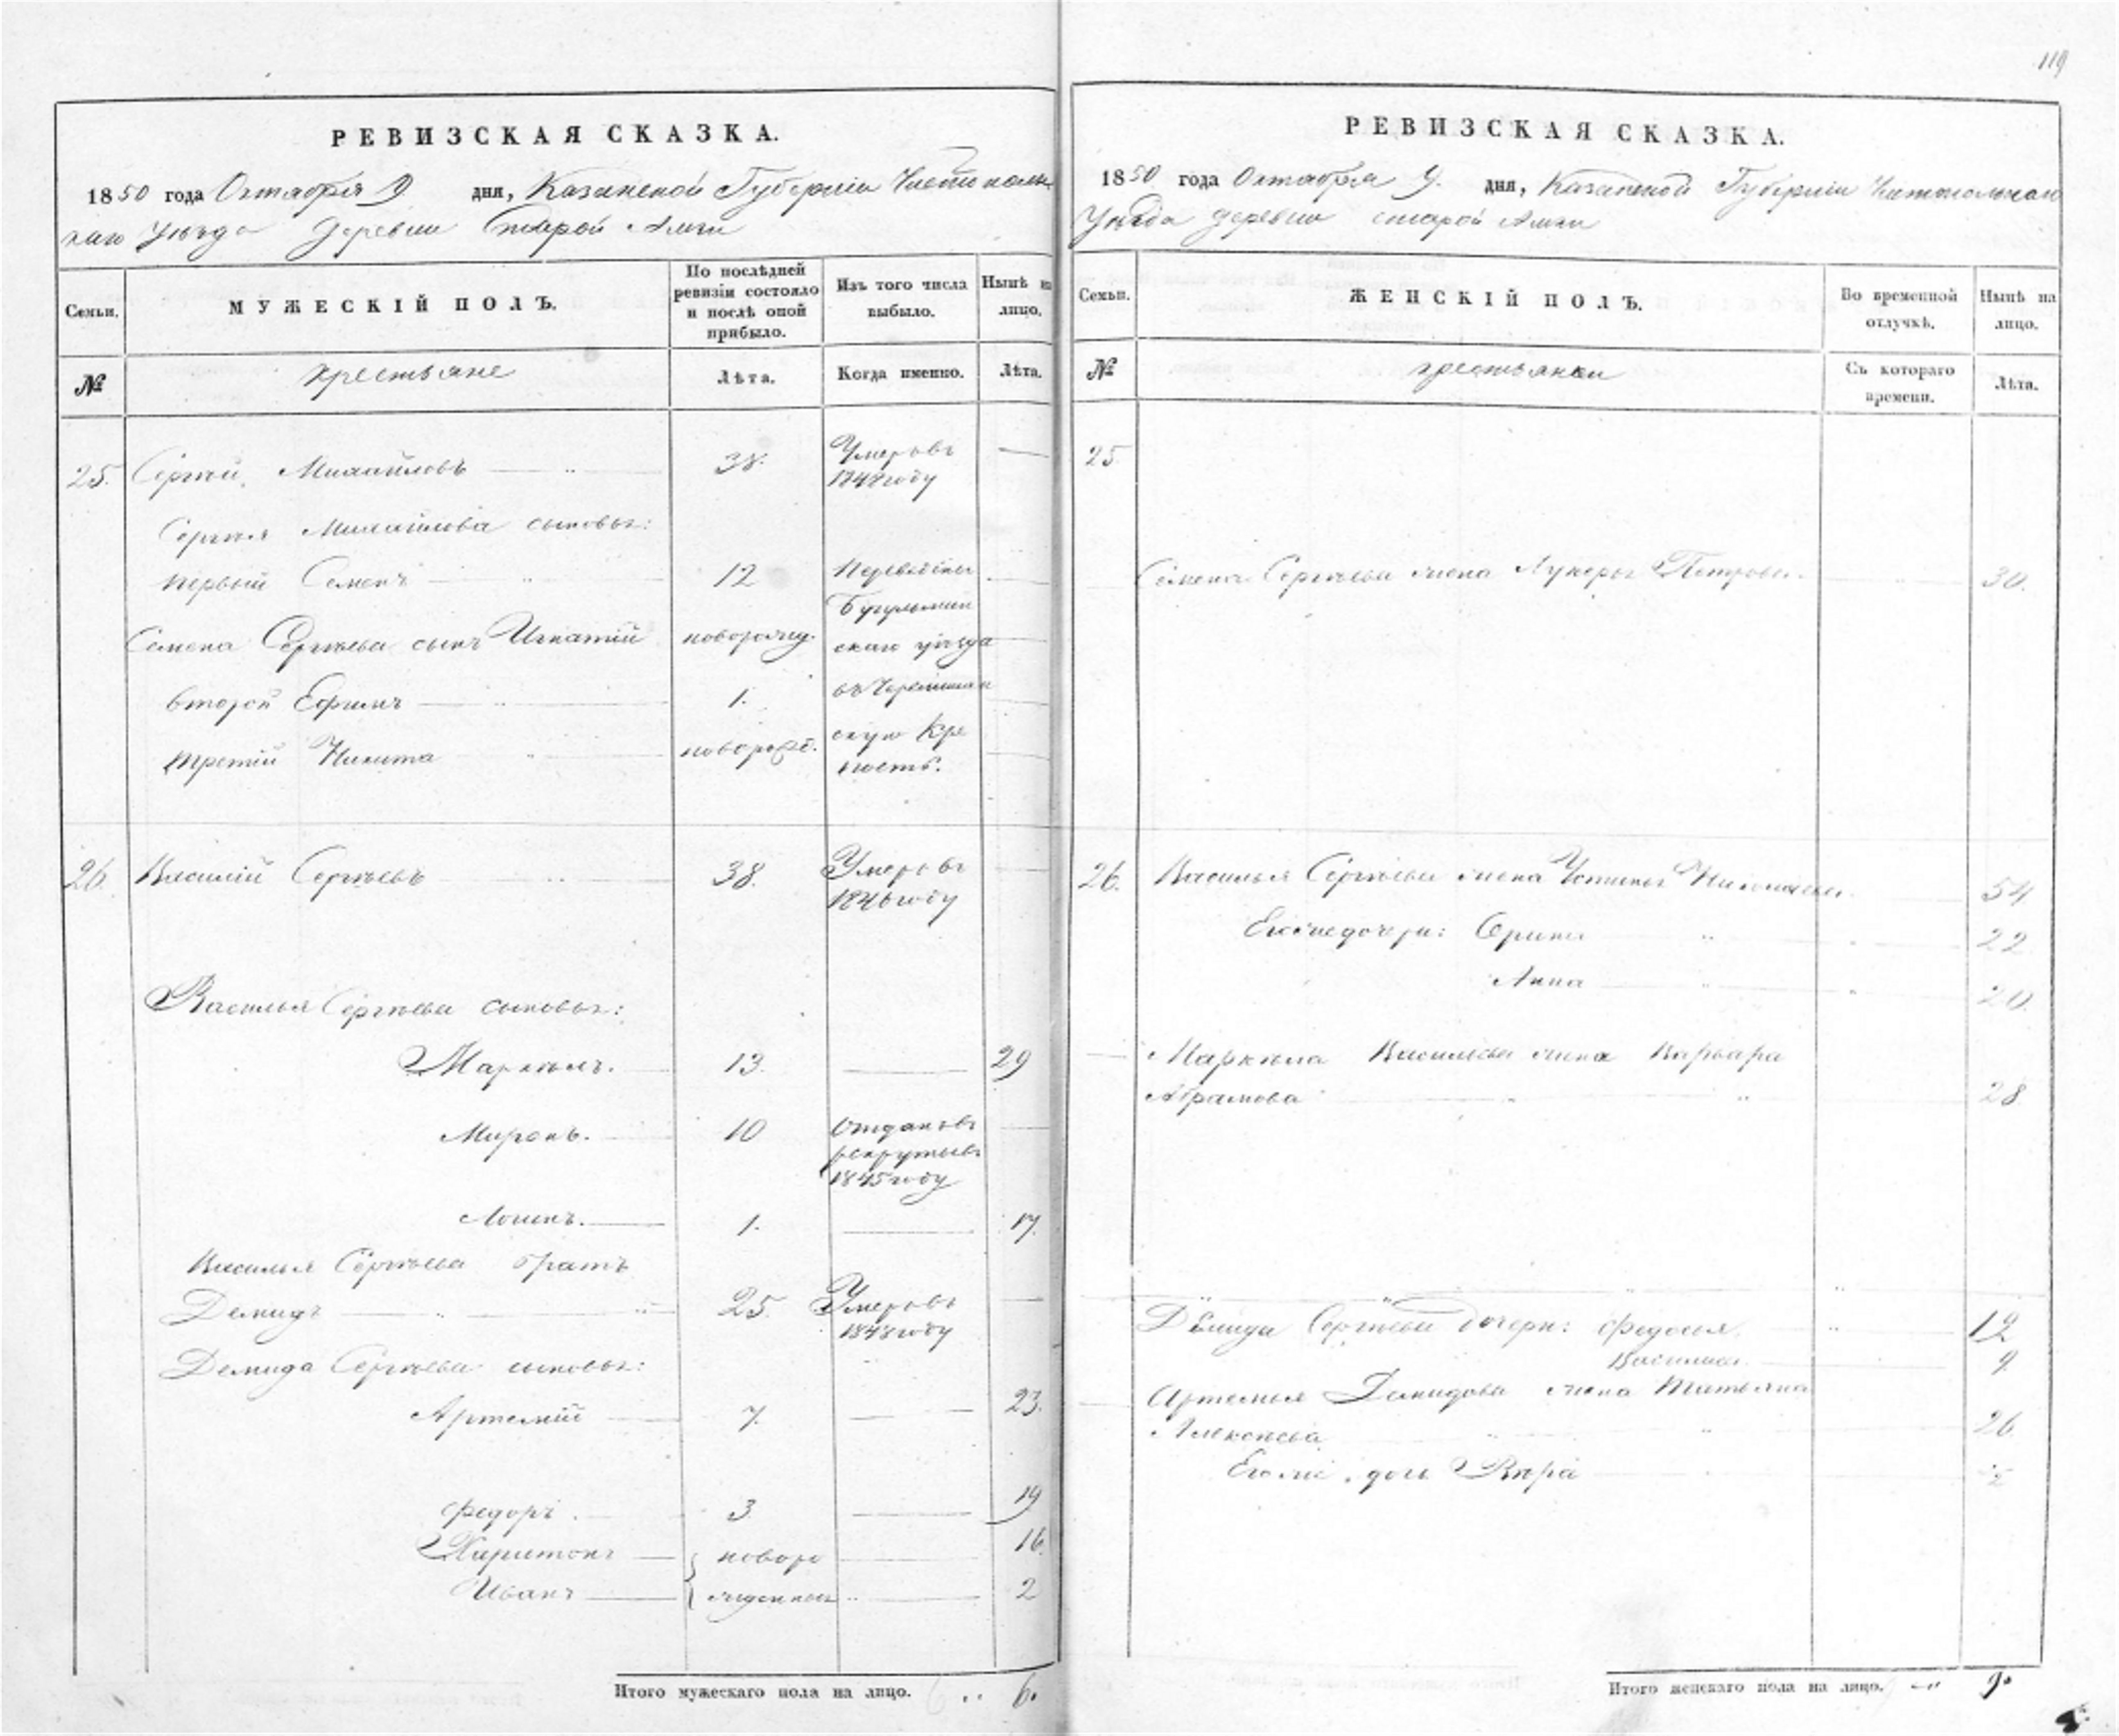 119
РЕВИЗСКАЯ СКАЗКА.
1850 года Октября 9 дня, Казанской Губерніи Чистополь
скаго Уѣзда Деревни Старой Амги
Семьи. МУЖЕСКІЙ ПОЛЪ. По послѣдней ревизіи состояло и послѣ оной прибыло. Изъ того числа выбыло. Нынѣ на лицо.
№ крестьяне Лѣта. Когда именно. Лѣта.
25. Сергѣй Михайловъ 38. Умеръ въ
1848 году
Сергѣя Михайлова сыновья:
первый Семенъ 12 Переведены
Бугульмин
Семена Сергѣева сынъ Игнатій новорожд. скаго уѣзда
второй Ефимъ 1. въ Черемшан
третій Никита новорожд. скую Крѣ
пость.
26. Василій Сергѣевъ 38. Умеръ въ
1846 году
Василья Сергѣева сыновья:
Маркелъ. 13. 29
Миронъ. 10 Отданъ въ
рекруты въ
1845 году
Логинъ. 1. 17.
Василья Сергѣева братъ
Демидъ 25. Умеръ въ
1848 году
Демида Сергѣева сыновья:
Артемій 7. 23.
Федоръ. 3 19
Харитонъ новоро 16.
Иванъ жденныя 2
Итого мужескаго пола на лицо. 6.
РЕВИЗСКАЯ СКАЗКА.
1850 года Октября 9. дня, Казанской Губерніи Чистопольскаго
Уѣзда деревни старой Амги
Семьи. ЖЕНСКІЙ ПОЛЪ. Во временной отлучкѣ. Нынѣ на лицо.
№ крестьянки Съ котораго времени. Лѣта.
25.
Семена Сергѣева жена Лукерья Петрова 30.
26. Василья Сергѣева жена Устинья Николаева 54
Его же дочери: Орина 22
Анна 20
Маркела Васильева жена Варвара
Абрамова 28
Демида Сергѣева дочери: Федосья 12
Василиса 9
Артемья Демидова жена Татьяна
Алексѣева 26
Его же дочь Вѣра 2
Итого женскаго пола на лицо. 9.